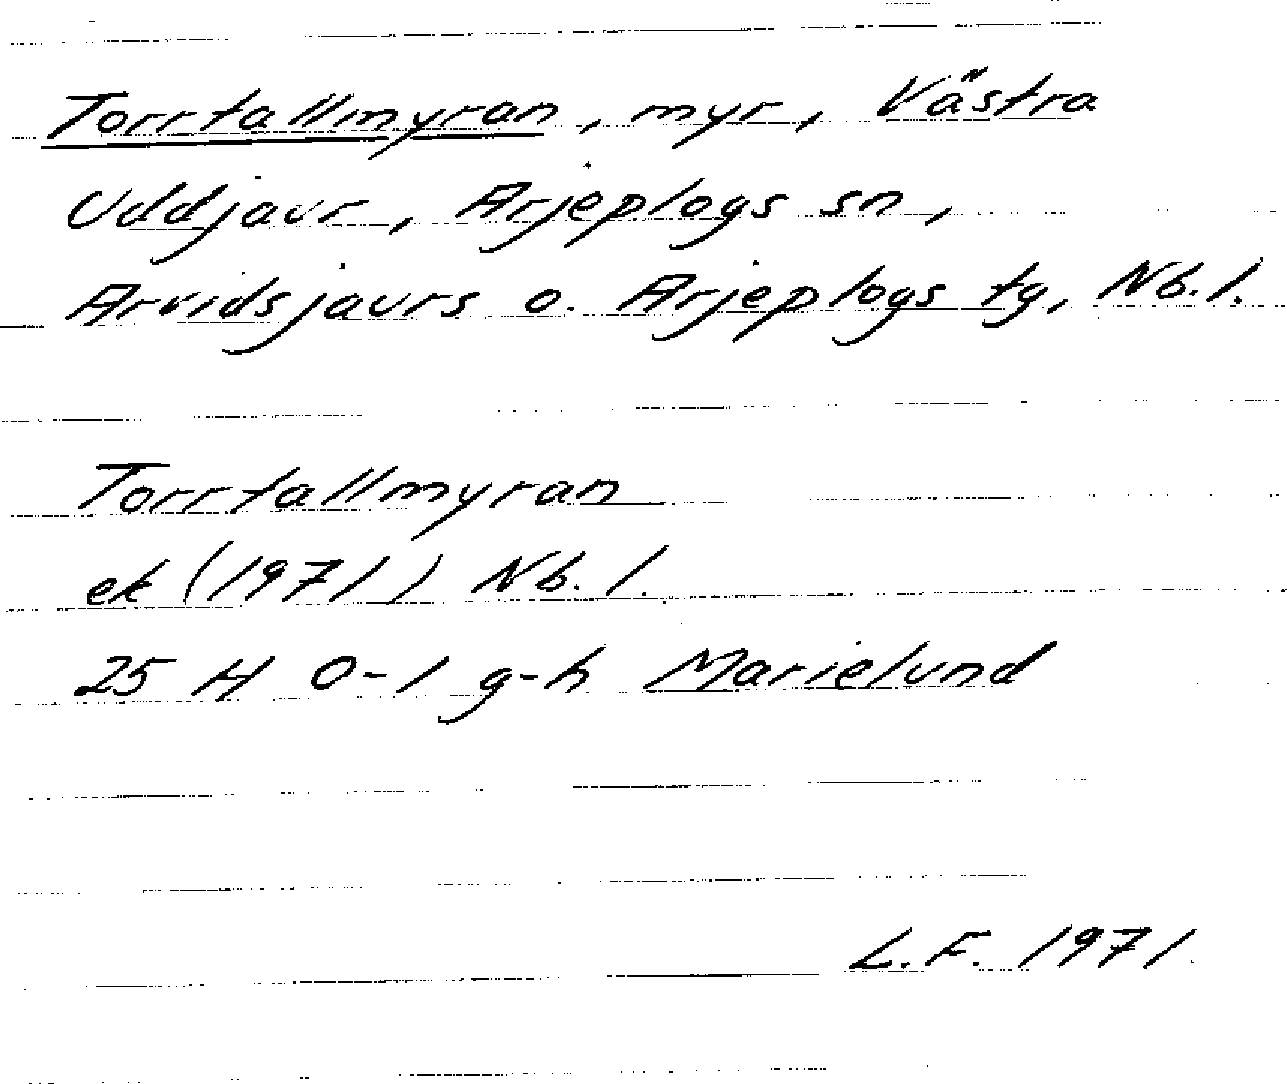 Torrtallmyran, myr, Västra
Uddjaur, Arjeplogs sn,
Arvidsjaurs o. Arjeplogs tg, Nb. l.
Torrtallmyran
ek (1971) Nb. l.
25 H 0-1 g-h Marielund
L.F. 1971.